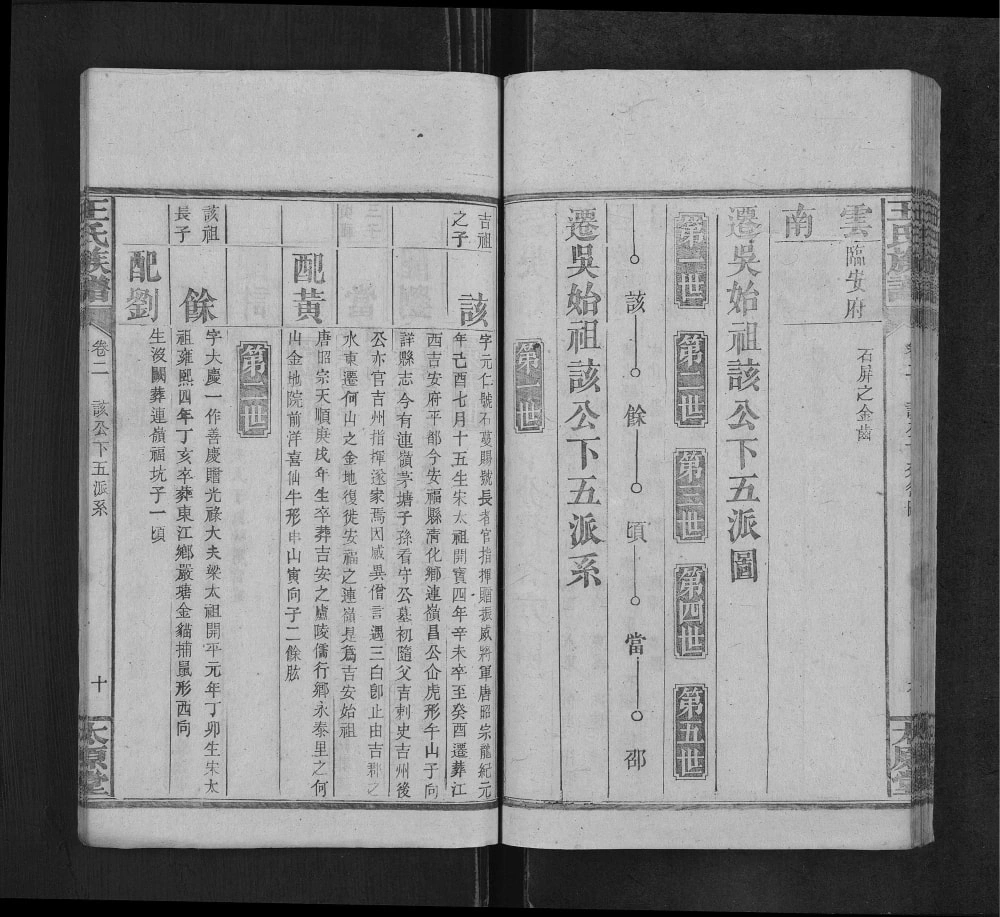 王氏族譜
太原堂
雲南
臨安府
石屏之金齒
遷吳始祖該公下五派圖
第一世
第二世
第三世
第四世
第五世
該
餘
頃
當
邵
遷吳始祖該公下五派系
第一世
吉祖之子
該
字元仁號石蔓賜號長者官指揮贈振威將軍唐昭宗龍紀元
年己酉七月十五生宋太祖開寶四年辛未卒至癸酉遷葬江
西吉安府平都今安福縣清化鄉連嶺昌公仚虎形午山子向
詳縣志今有連嶺茅塘子孫看守公墓初隨父吉刺史吉州後
公亦官吉州指揮遂家焉因感異僧言遇三白卽止由吉郡之
水東遷何山之金地復徙安福之連嶺是爲吉安始祖
配黃
唐昭宗天順庚戌年生卒葬吉安之廬陵儒行鄉永泰里之何
山金地院前洋喜仙牛形申山寅向子二餘肱
第二世
該祖長子
餘
字大慶一作善慶贈光祿大夫梁太祖開平元年丁卯生宋太
祖雍熙四年丁亥卒葬東江鄉嚴塘金貓捕鼠形西向
配劉
生歿闕葬連嶺福坑子一頃
王氏族譜
卷二
該公下五派系
十
太原堂